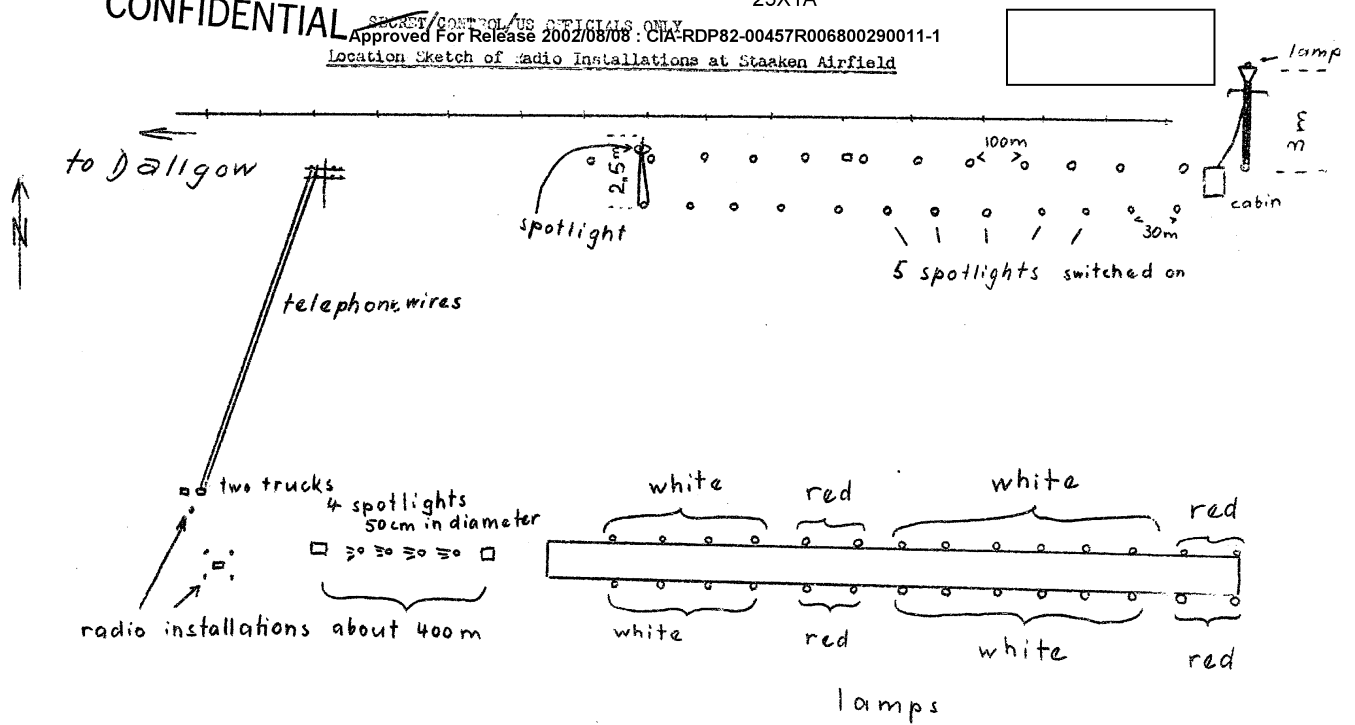 25X1A
CONFIDENTIAL
SECRET/CONTROL/US OFFICIALS ONLY
Approved For Release 2002/08/08 : CIA-RDP82-00457R006800290011-1
Location Sketch of Radio Installations at Staaken Airfield
lamp
to Dallgow
N
2,5m
100m
cabin
spotlight
30m
5 spotlights switched on
telephone wires
two trucks
4 spotlights
50cm in diameter
white
red
white
red
radio installations about 400m
white
red
white
red
lamps